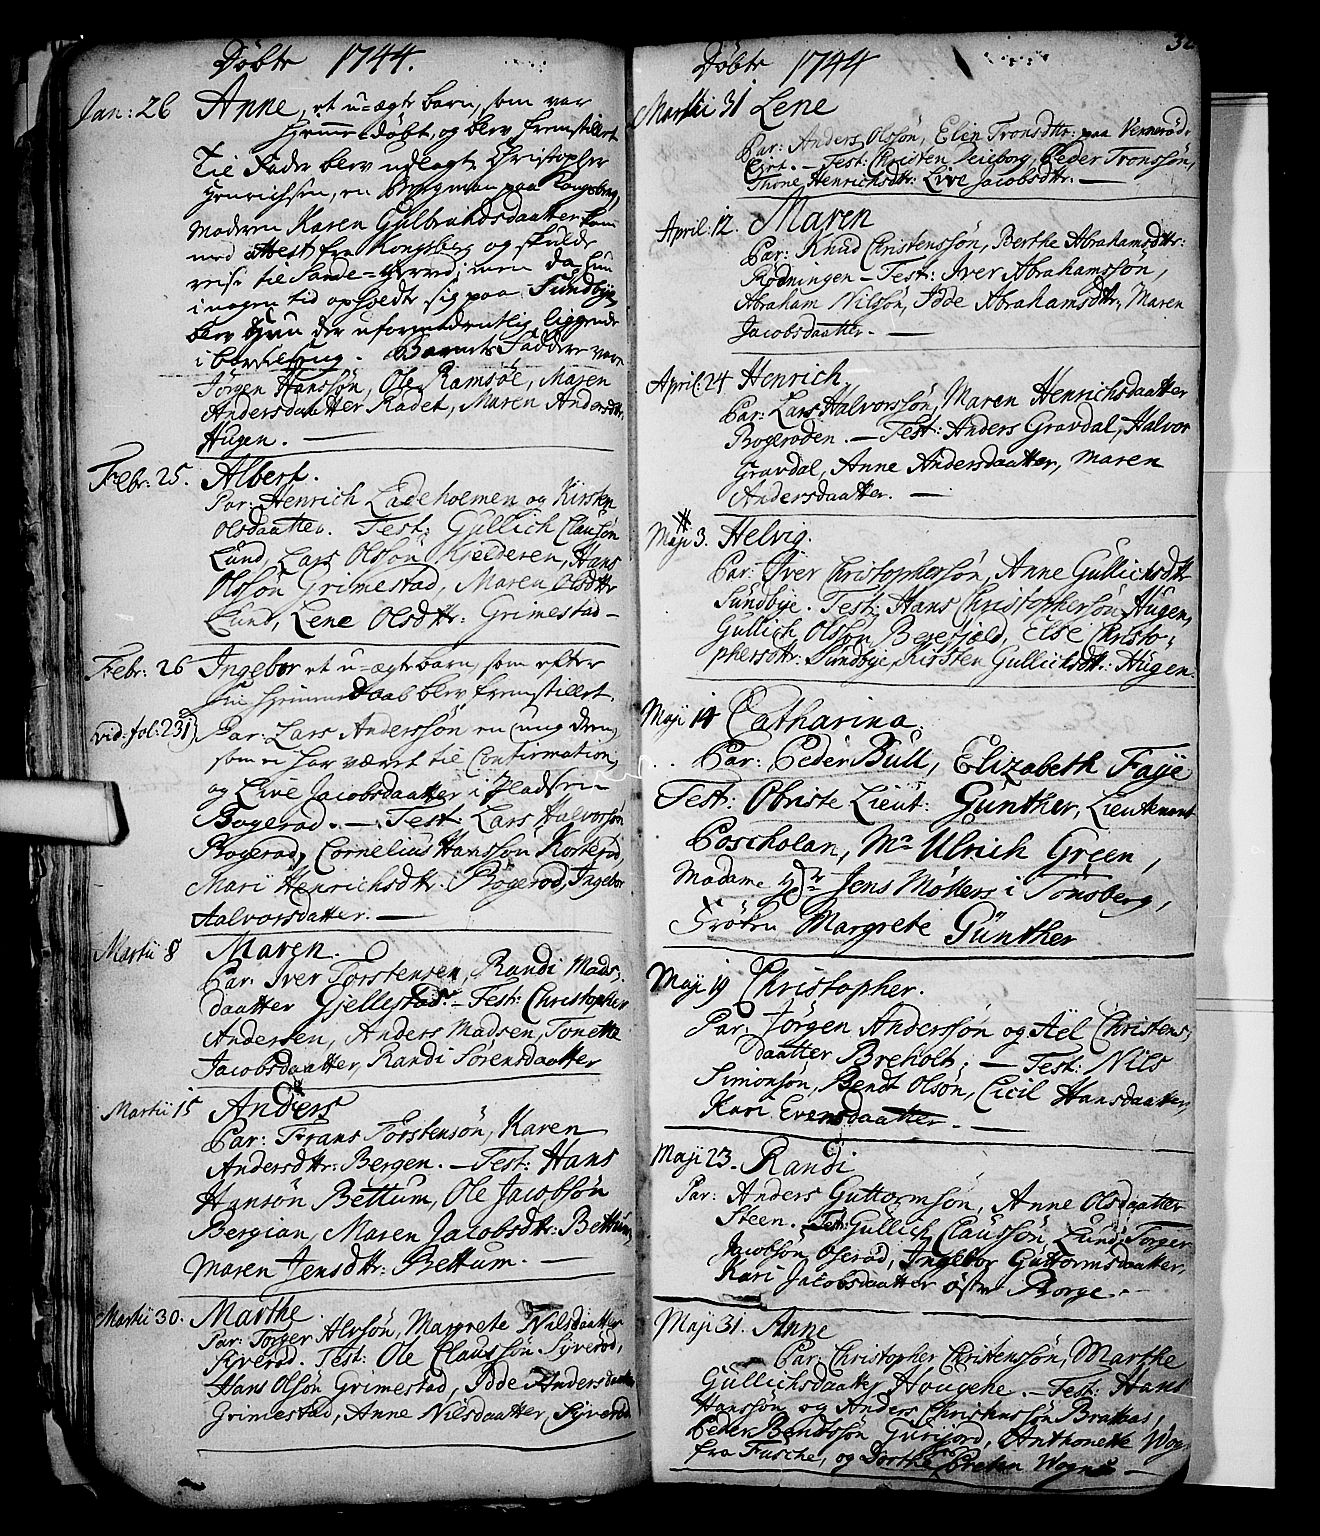 Döbte 1744.
Jan: 26 Anne, et u-ægte barn, som var
hjemmedöbt, og blev fremstillet
Til Fader blev udlagt Christopher
Henrichsen, en Bergman paa Kongsberg,
Moderen Karen Gulbrandsdaatter kom
med attest fra Kongsberg og skulde
reise til Sande-Herred; men da hun
i nogen tid opholdt sig paa Sundbye,
blev hun der uformodentlig liggende
i barselseng. Barnets Faddere vare
Jörgen Hanssön, Ole Ramsöe, Maren
Andersdaatter Rödet, Maren Andersdttr:
Hugen. —
Febr: 25. Albert.
Par: Henrich Ladeholmen og Kirsten
Olsdaatter. Test: Gullich Claussön
Lund, Lars Olssön Kjelderen, Hans
Olssön Grimestad, Maren Olsdttr
Lund, Lene Olsdttr: Grimestad —
Febr: 26 Ingebor et u-ægte barn, som efter
sin hjemmedaab blev fremstillet.
(vid: fol: 231) Par: Lars Anderssön en ung dreng
som ei har været til Confirmation,
og Live Jacobsdaatter i Pladsen
Bogeröd. — Test: Lars Halvorssön
Bogeröd, Cornelius Hanssön Korteröd,
Mari Henrichsdttr. Bögeröd, Ingebor
Halvorsdatter. —
Martii 8 Maren.
Par: Iver Torstensen, Randi Mads-
daatter Gjellestad. — Test: Christopher
Andersen, Anders Madsen, Tonette
Jacobsdaatter, Randi Sörensdaatter
Martii 15 Anders
Par: Frans Torstensön, Karen
Andersdttr: Bergen. — Test: Hans
Hansön Bettum, Ole Jacobsön
Bergian, Maren Jacobsdttr: Bettum,
Maren Jensdttr: Bettum. —
Martii 30. Marthe
Par: Torger Alvsön, Margrete Nilsdaatter
Syveröd. Test: Ole Claussön Syveröd,
Hans Olsön Grimestad, Idde Andersdaatter
Grimestad, Anne Nilsdaatter, Syveröd
Döbte 1744
Martii 31 Lene
Par: Anders Olssön, Elin Tronsdttr: paa Venneröd-
Eiet. — Test: Christen Leieborg, Peder Tronssön,
Thone Henrichsdttr: Live Jacobsdttr. —
April: 12. Maren
Par: Knud Christenssön, Berthe Abrahamsdttr:
Rödningen — Test: Iver Abrahamssön,
Abraham Nilsön, Idde Abrahamsdttr, Maren
Jacobsdaatter. —
April: 24 Henrich
Par: Lars Halvorssön, Maren Henrichsdaatter
Bogeröden. — Test: Anders Gravdal, Halvor
Gravdal, Anne Andersdaatter, Maren
Andersdaatter. —
Maji 3. Helvig.
Par: Iver Christophersön, Anne Gullichsdttr
Sundbye. Test: Hans Christophersön Hugen,
Gullich Olssön Bergfjeld, Else Christo-
phersdttr: Sundbye, Kirsten Gullichsdttr: Hugen.
Maji 14 Catharina.
Par: Peder Bull, Elizabeth Faÿe
Test: Obriste Lieut: Günther, Lieutenant
Poscholan, Mr Ulrich Green,
Madame Sr Jens Möllers i Tönsberg,
Fröken Margrete Günther
Maji 19 Christopher.
Par. Jörgen Anderssön og Ael Christens-
daatter Breholt; — Test: Nils
Simonsön, Bendt Olsön, Cicil Hansdaatter,
Kari Evensdaatter. —
Maji 23. Randi
Par: Anders Guttormsön, Anne Olsdaatter
Steen. Test: Gullich Claussön Lund, Torger
Jacobsön Oseröd, Ingebor Guttormsdaatter,
Kari Jacobsdaatter östre Borge. —
Maji 31. Anne
Par: Christopher Christenssön, Marthe
Gullichsdaatter Hougene. — Test: Hans
Hanssön og Anders Christenssön Brattaas,
Peder Bendtssön Gurijord, Anthonette Wogn
fra Fusche, og Dorthe Wogns —